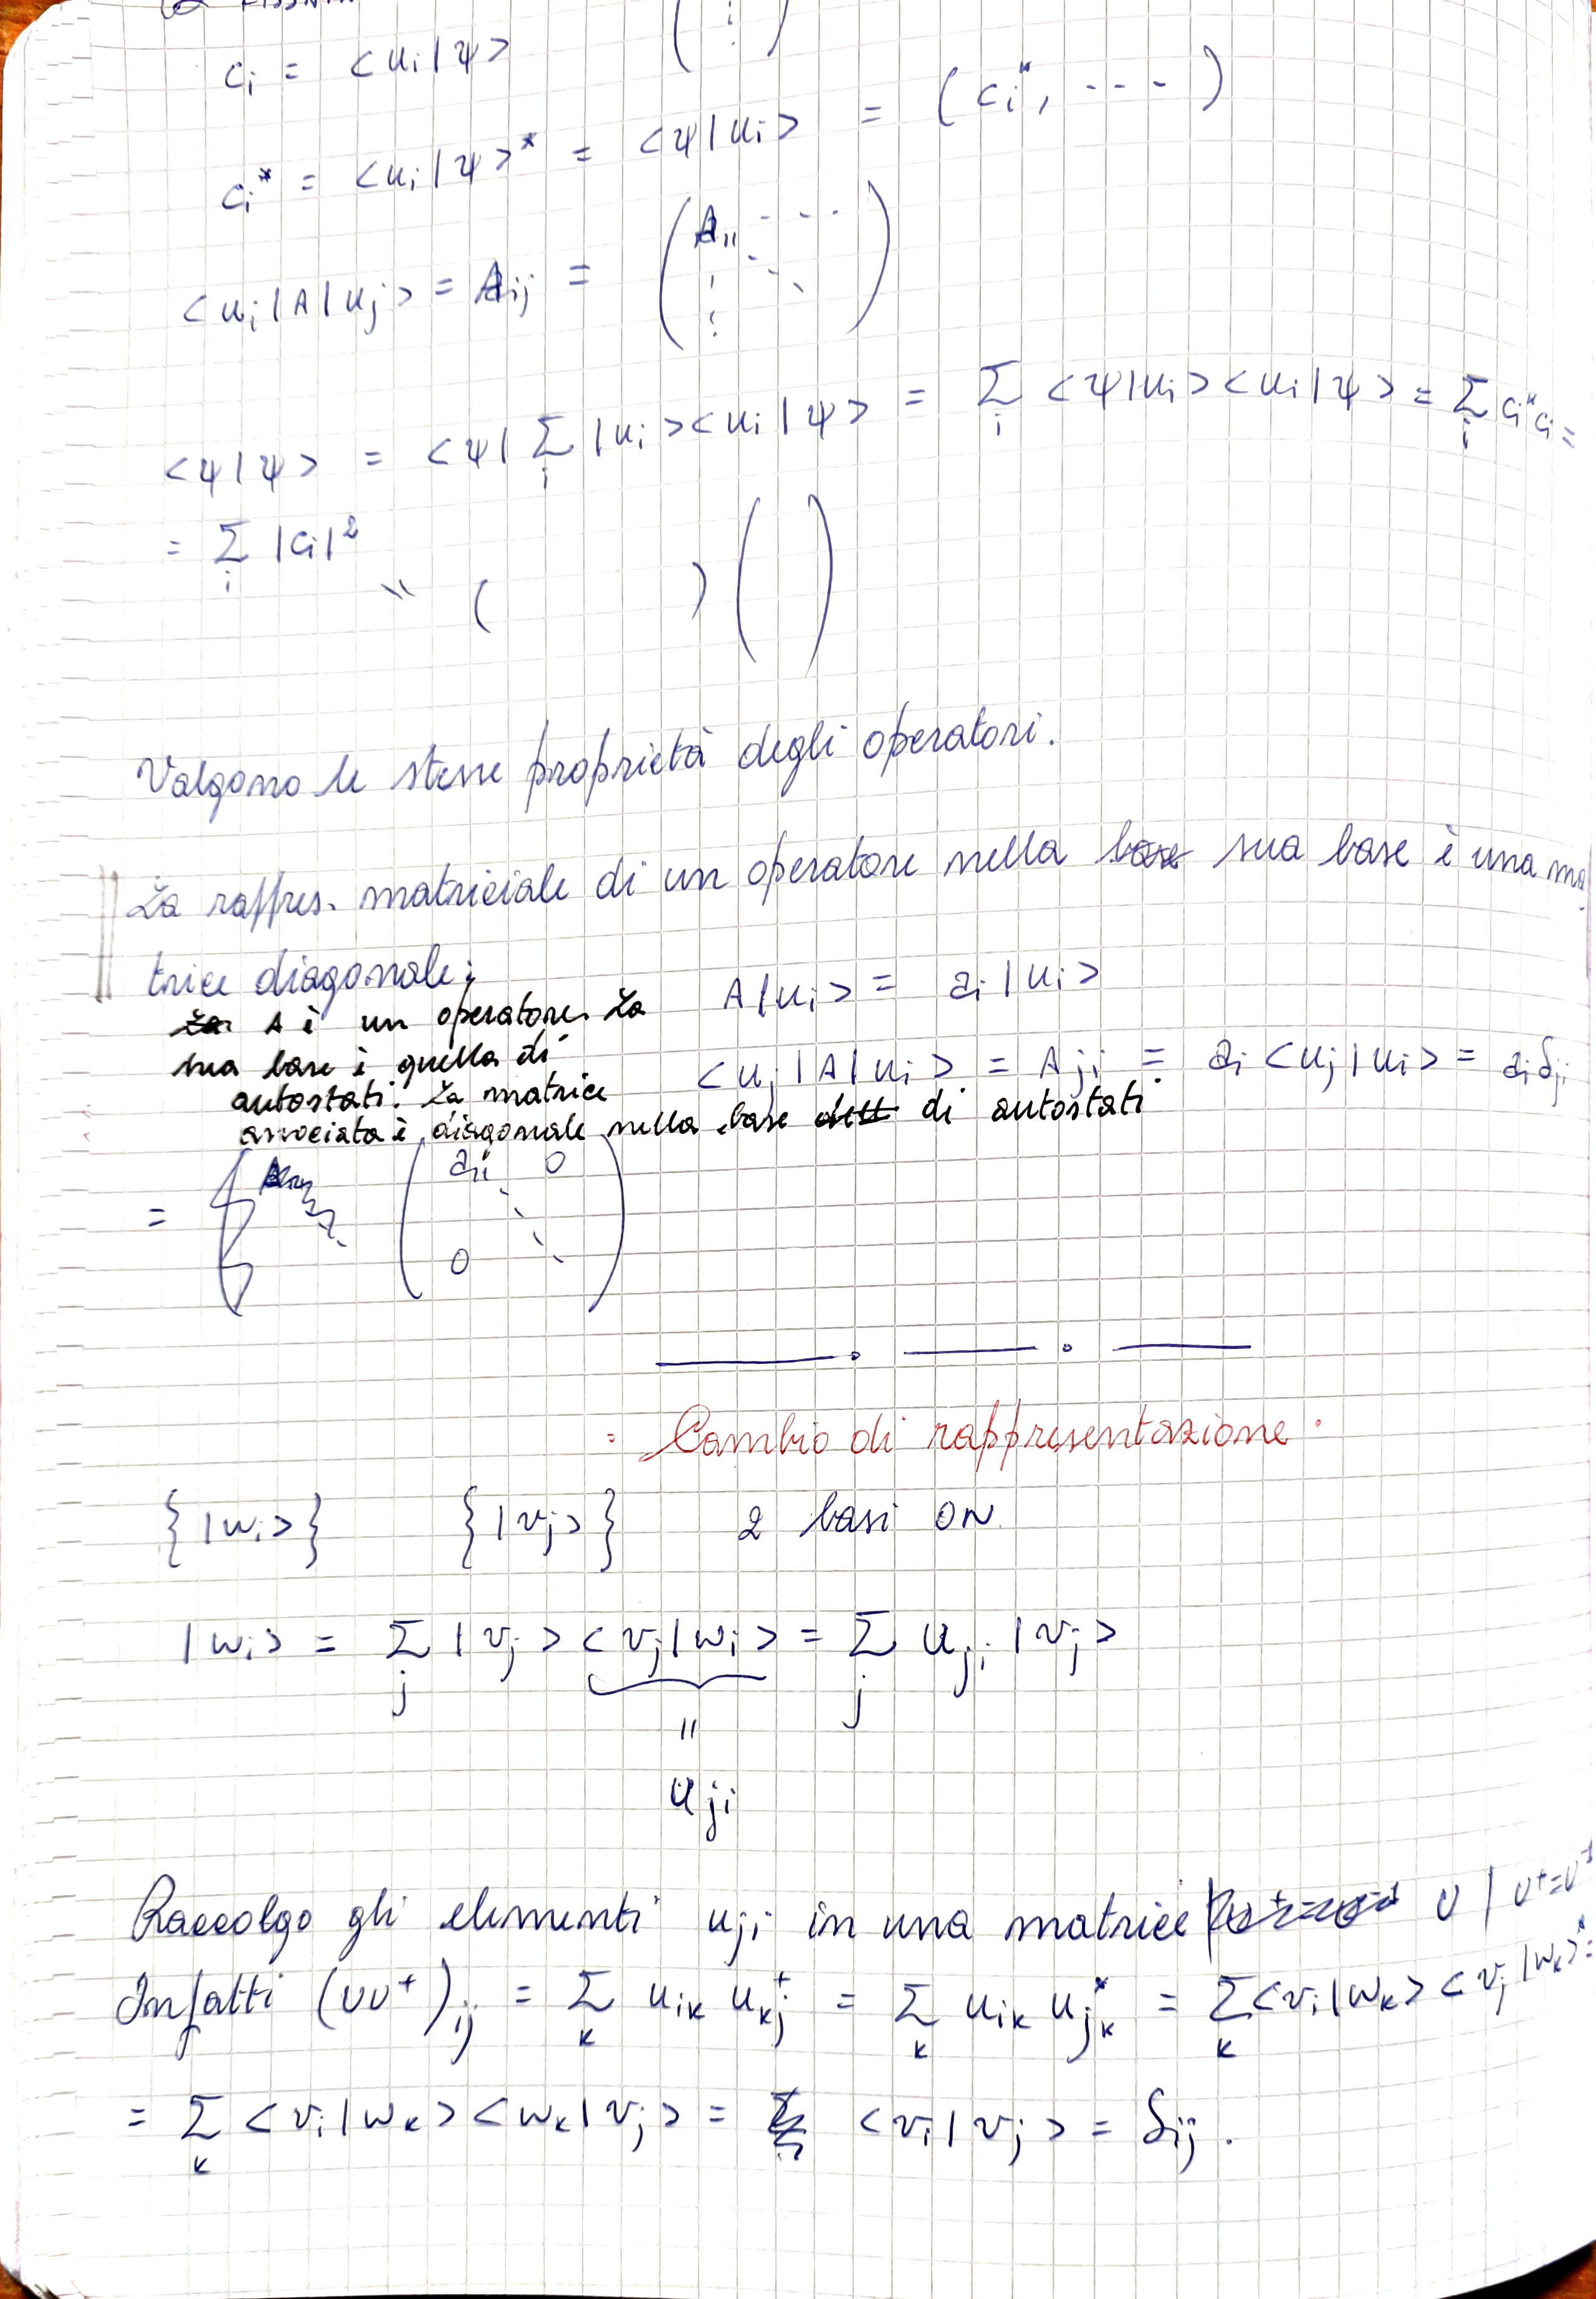 c_i = <u_i|ψ>
c_i* = <u_i|ψ>* = <ψ|u_i> = (c_i*, ---)
<u_i|A|u_j> = A_ij = (A_11 ...)
<ψ|ψ> = <ψ|Σ_i |u_i><u_i|ψ> = Σ_i <ψ|u_i><u_i|ψ> = Σ_i c_i* c_i =
= Σ_i |c_i|²
" ( ) ( )
Valgono le stesse proprietà degli operatori.
La rappres. matriciale di un operatore nella base sua base è una ma
trice diagonale:
A|u_i> = a_i|u_i>
La A è un operatore. La
sua base è quella di
autostati. La matrice
associata è diagonale nella base dell di autostati
<u_j|A|u_i> = A_ji = a_i <u_j|u_i> = a_i δ_ji
= ( a_ii 0
0 )
Cambio di rappresentazione.
{|w_i>} {|v_j>} 2 basi ON
|w_i> = Σ_j |v_j><v_j|w_i> = Σ_j u_ji |v_j>
"
u_ji
Raccolgo gli elementi u_ji in una matrice U / U⁺=U⁻¹
Infatti (UU⁺)_ij = Σ_k u_ik u_kj⁺ = Σ_k u_ik u_jk* = Σ_k <v_i|w_k><v_j|w_k>* =
= Σ_k <v_i|w_k><w_k|v_j> = <v_i|v_j> = δ_ij.